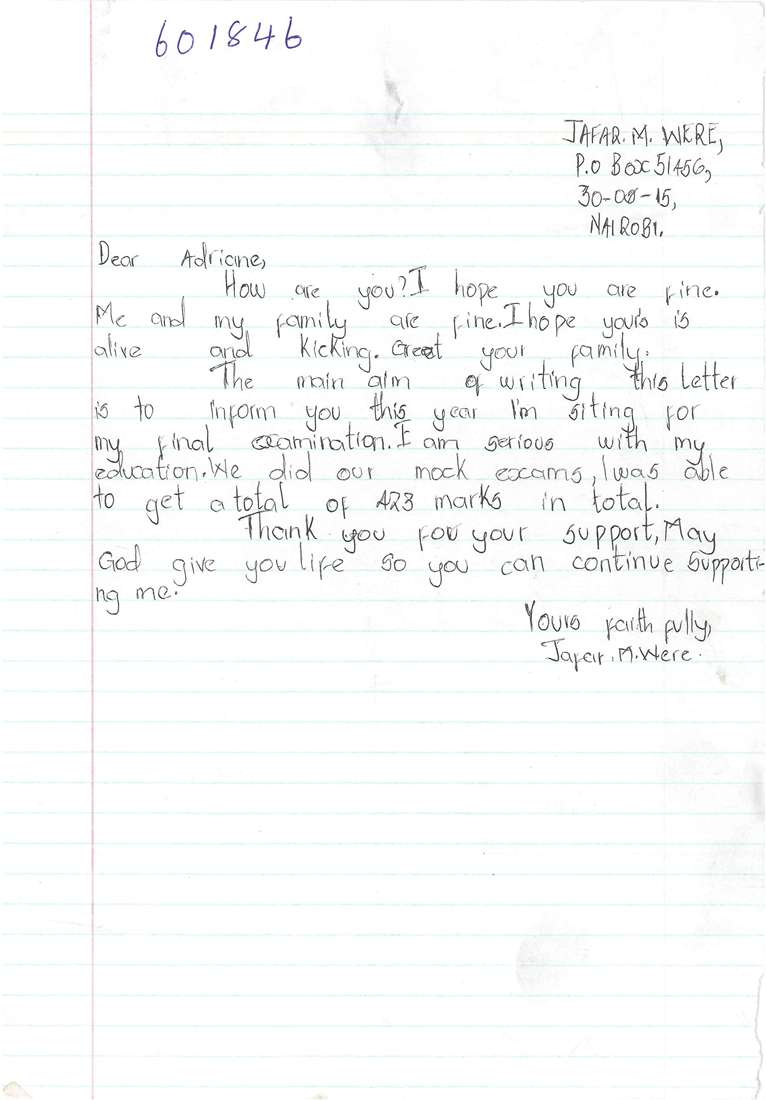 601846
JAFAR. M. WERE,
P.O Box 51456,
30-08-15,
NAIROBI.
Dear Adriane,
How are you? I hope you are fine.
Me and my family are fine. I hope yours is
alive and kicking. Greet your family.
The main aim of writing this Letter
is to inform you this year I'm siting for
my final examination. I am serious with my
education. We did our mock exams, I was able
to get a total of 423 marks in total.
Thank you for your support, May
God give you life so you can continue supporti-
ng me.
Yours faith fully,
Jafar. M. Were.